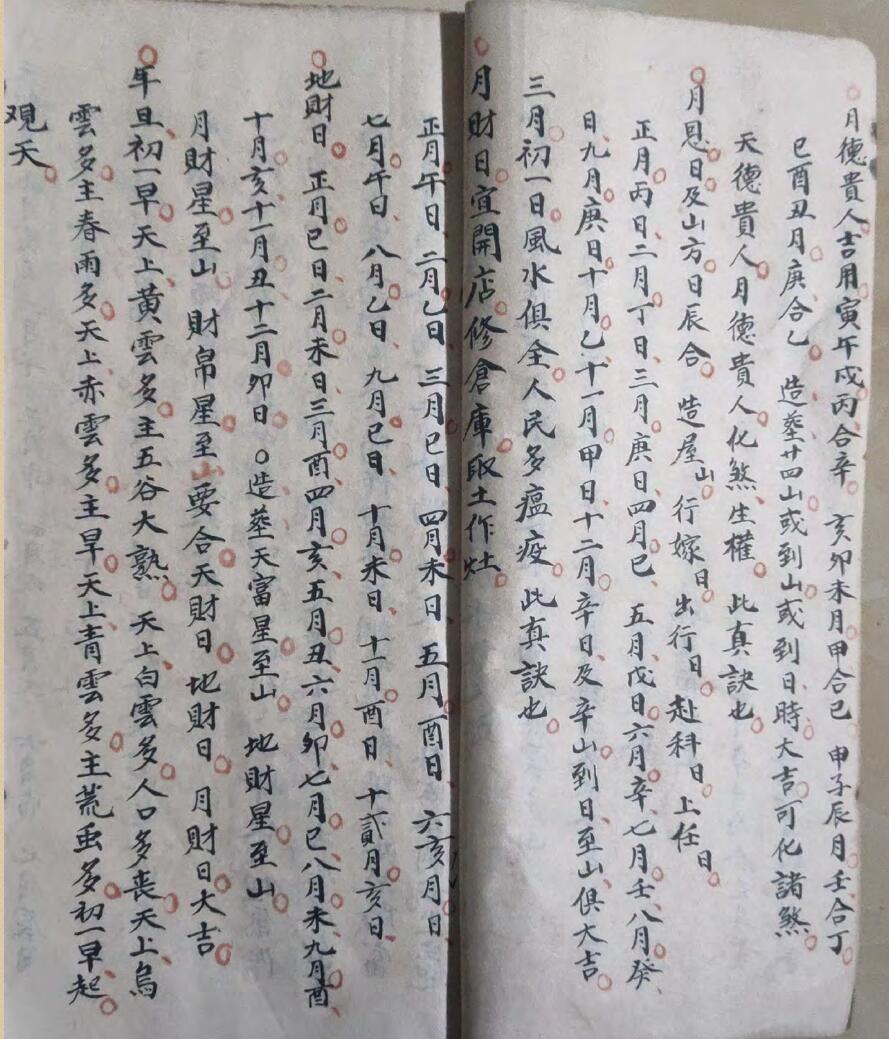 月德貴人吉用寅午戌丙合辛 亥卯未月甲合己 申子辰月壬合丁
巳酉丑月庚合乙 造塟廿四山或到山或到日時大吉可化諸煞
天德貴人月德貴人化煞生權 此真訣也
月恩日及山方日辰合 造屋山行嫁日出行日 赴科日上任日
正月丙日二月丁日三月庚日四月巳 五月戊日六月辛七月壬八月癸
日九月庚日十月乙十一月甲日十二月辛日及 辛山到日至山俱大吉
三月初一日風水俱全人民多瘟疫 此真訣也
月財日宜開店修倉庫取土作灶
正月午日 二月乙日 三月巳日 四月未日 五月酉日 六亥月日
七月午日 八月乙日 九月巳日 十月未日 十一月酉日 十貳月亥日
地財日 正月巳日二月未日三月酉四月亥五月丑六月卯七月巳八月未九月酉
十月亥十一月丑十二月卯日 ○造塟天富星至山 地財星至山
月財星至山 財帛星至山要合天財日 地財日 月財日大吉
年旦初一早天上黃雲多主五谷大熟 天上白雲多人口多丧天上烏
雲多主春雨多天上赤雲多主旱天上青雲多主荒虫多初一早起
观天